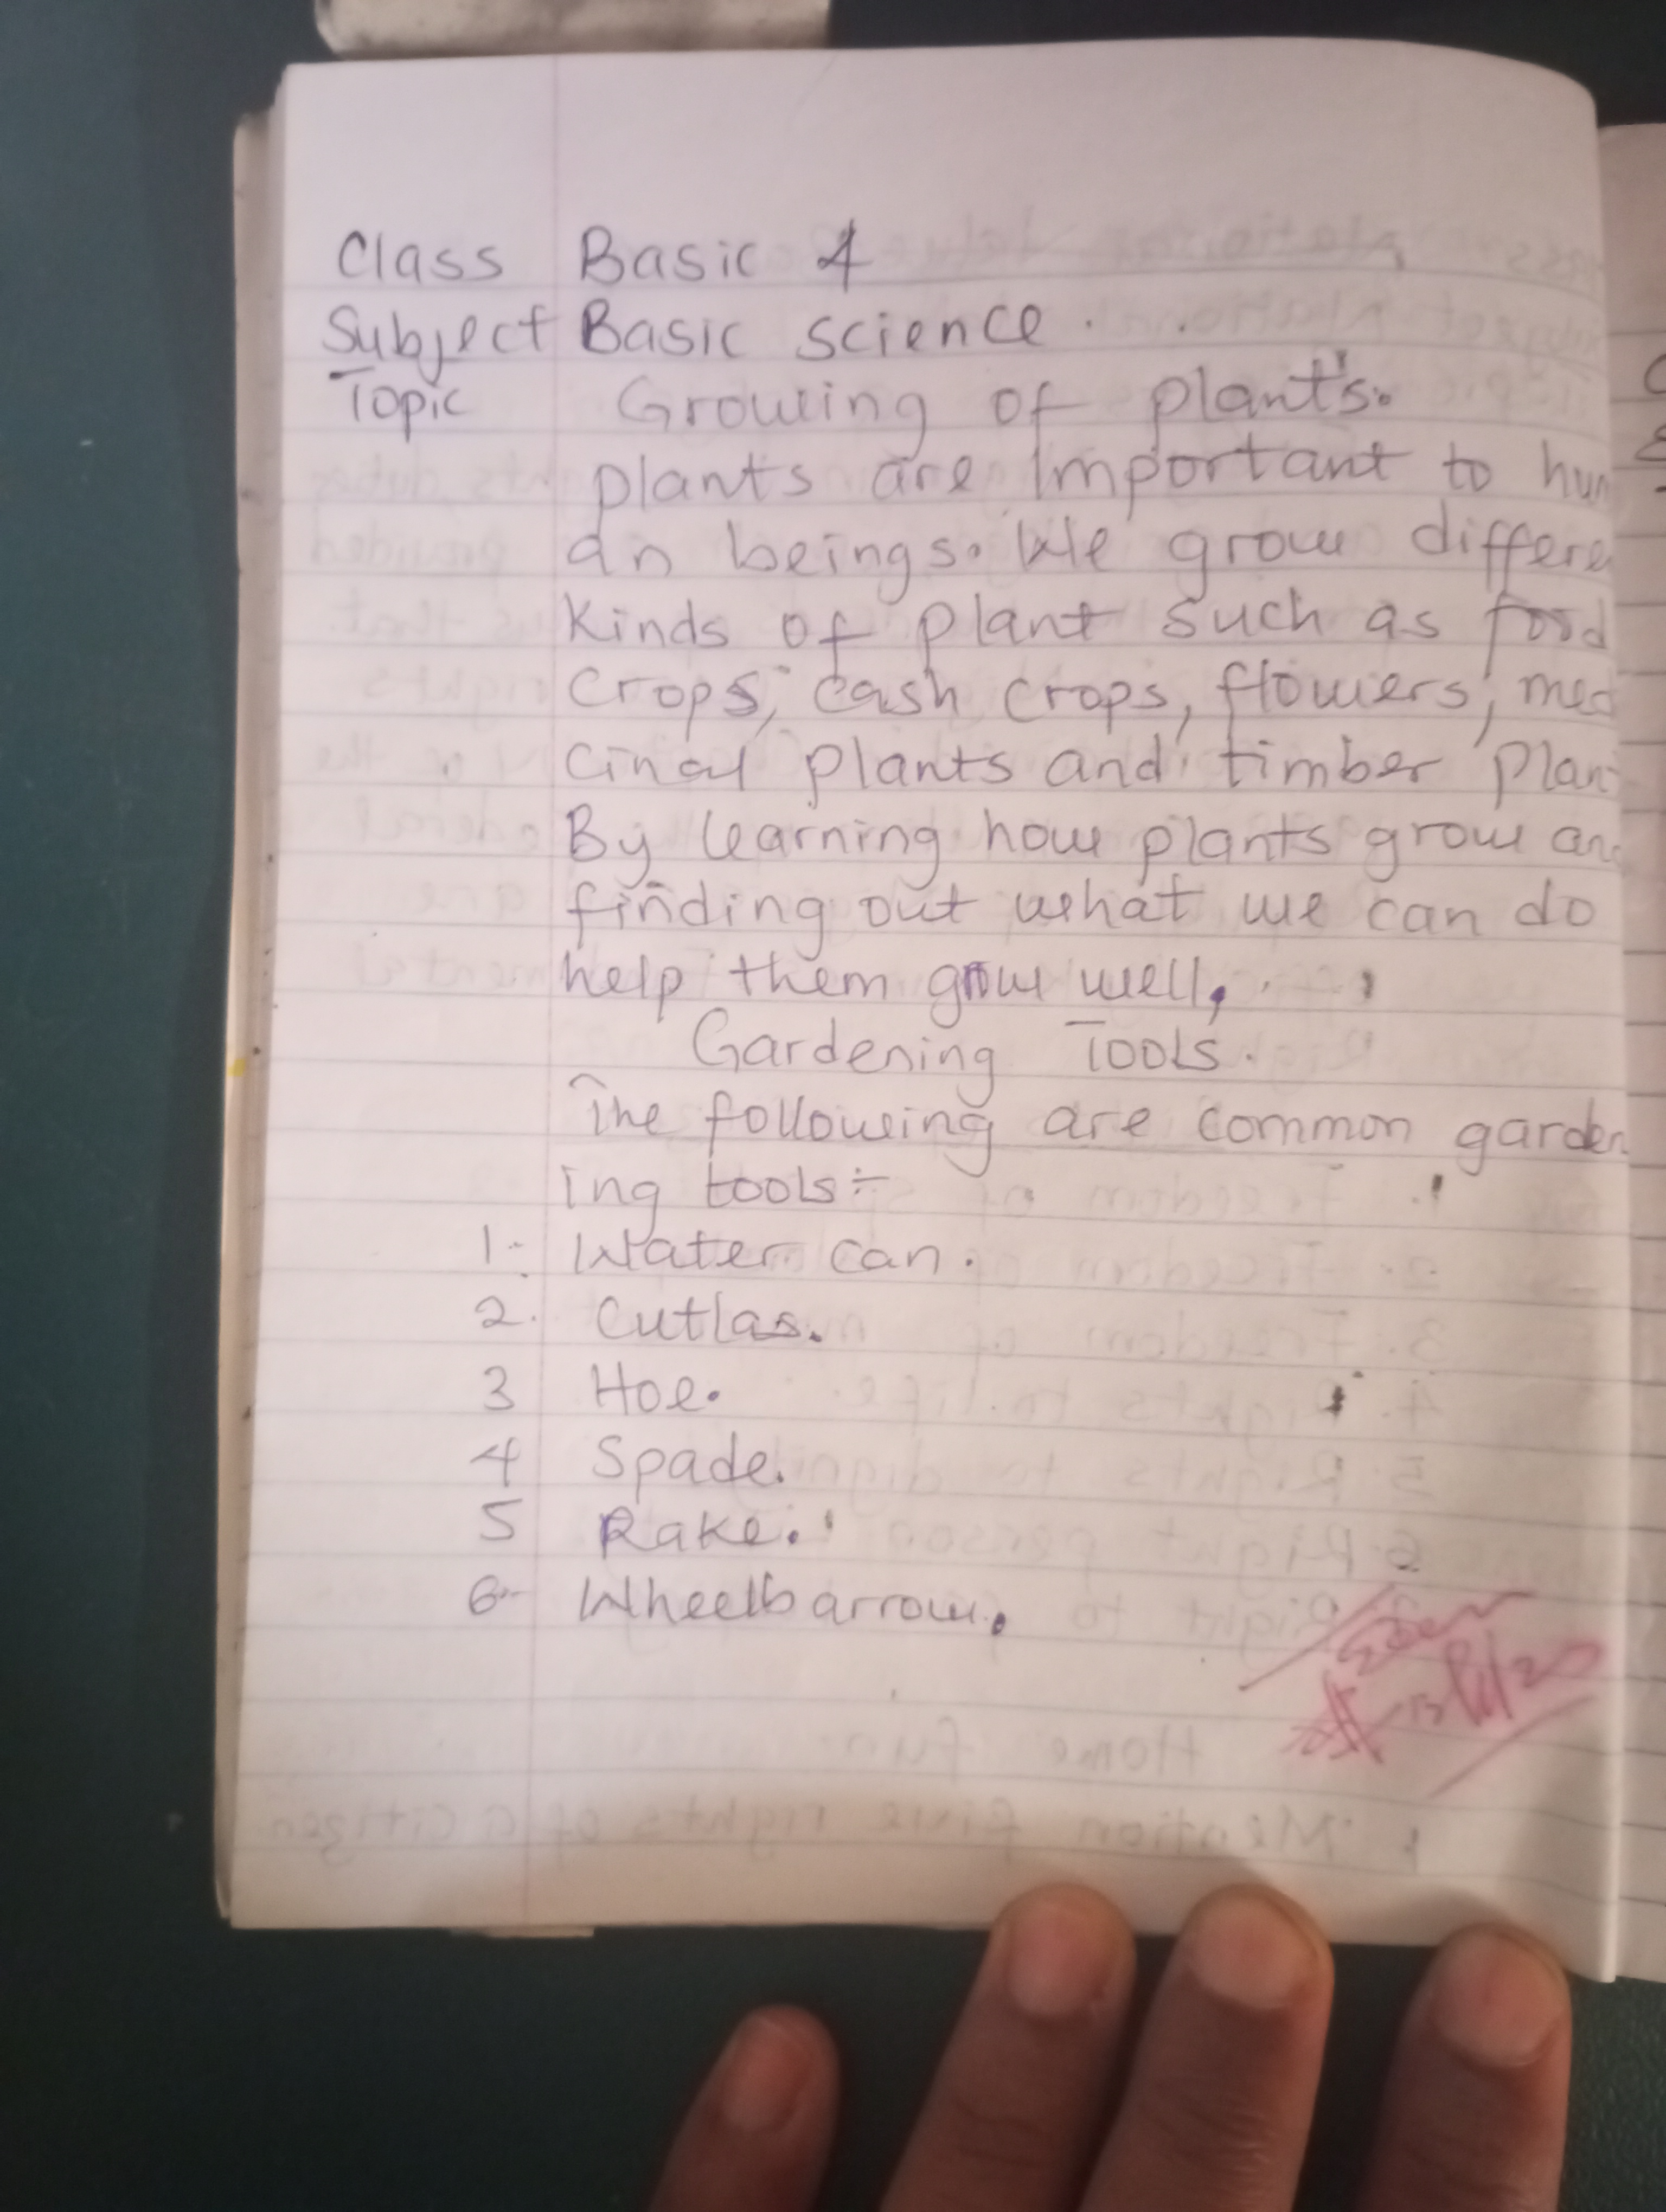 Class Basic 4
Subject Basic science.
Topic Growing of plants.
plants are important to hum
an beings. We grow differe
kinds of plant such as food
crops, cash crops, flowers, med
cinal plants and timber plan
By learning how plants grow and
finding out what we can do
help them grow well.
Gardening Tools.
The following are common garden
ing tools:-
1. Water can.
2. Cutlas.
3 Hoe.
4 Spade.
5 Rake.
6- Wheelbarrow.